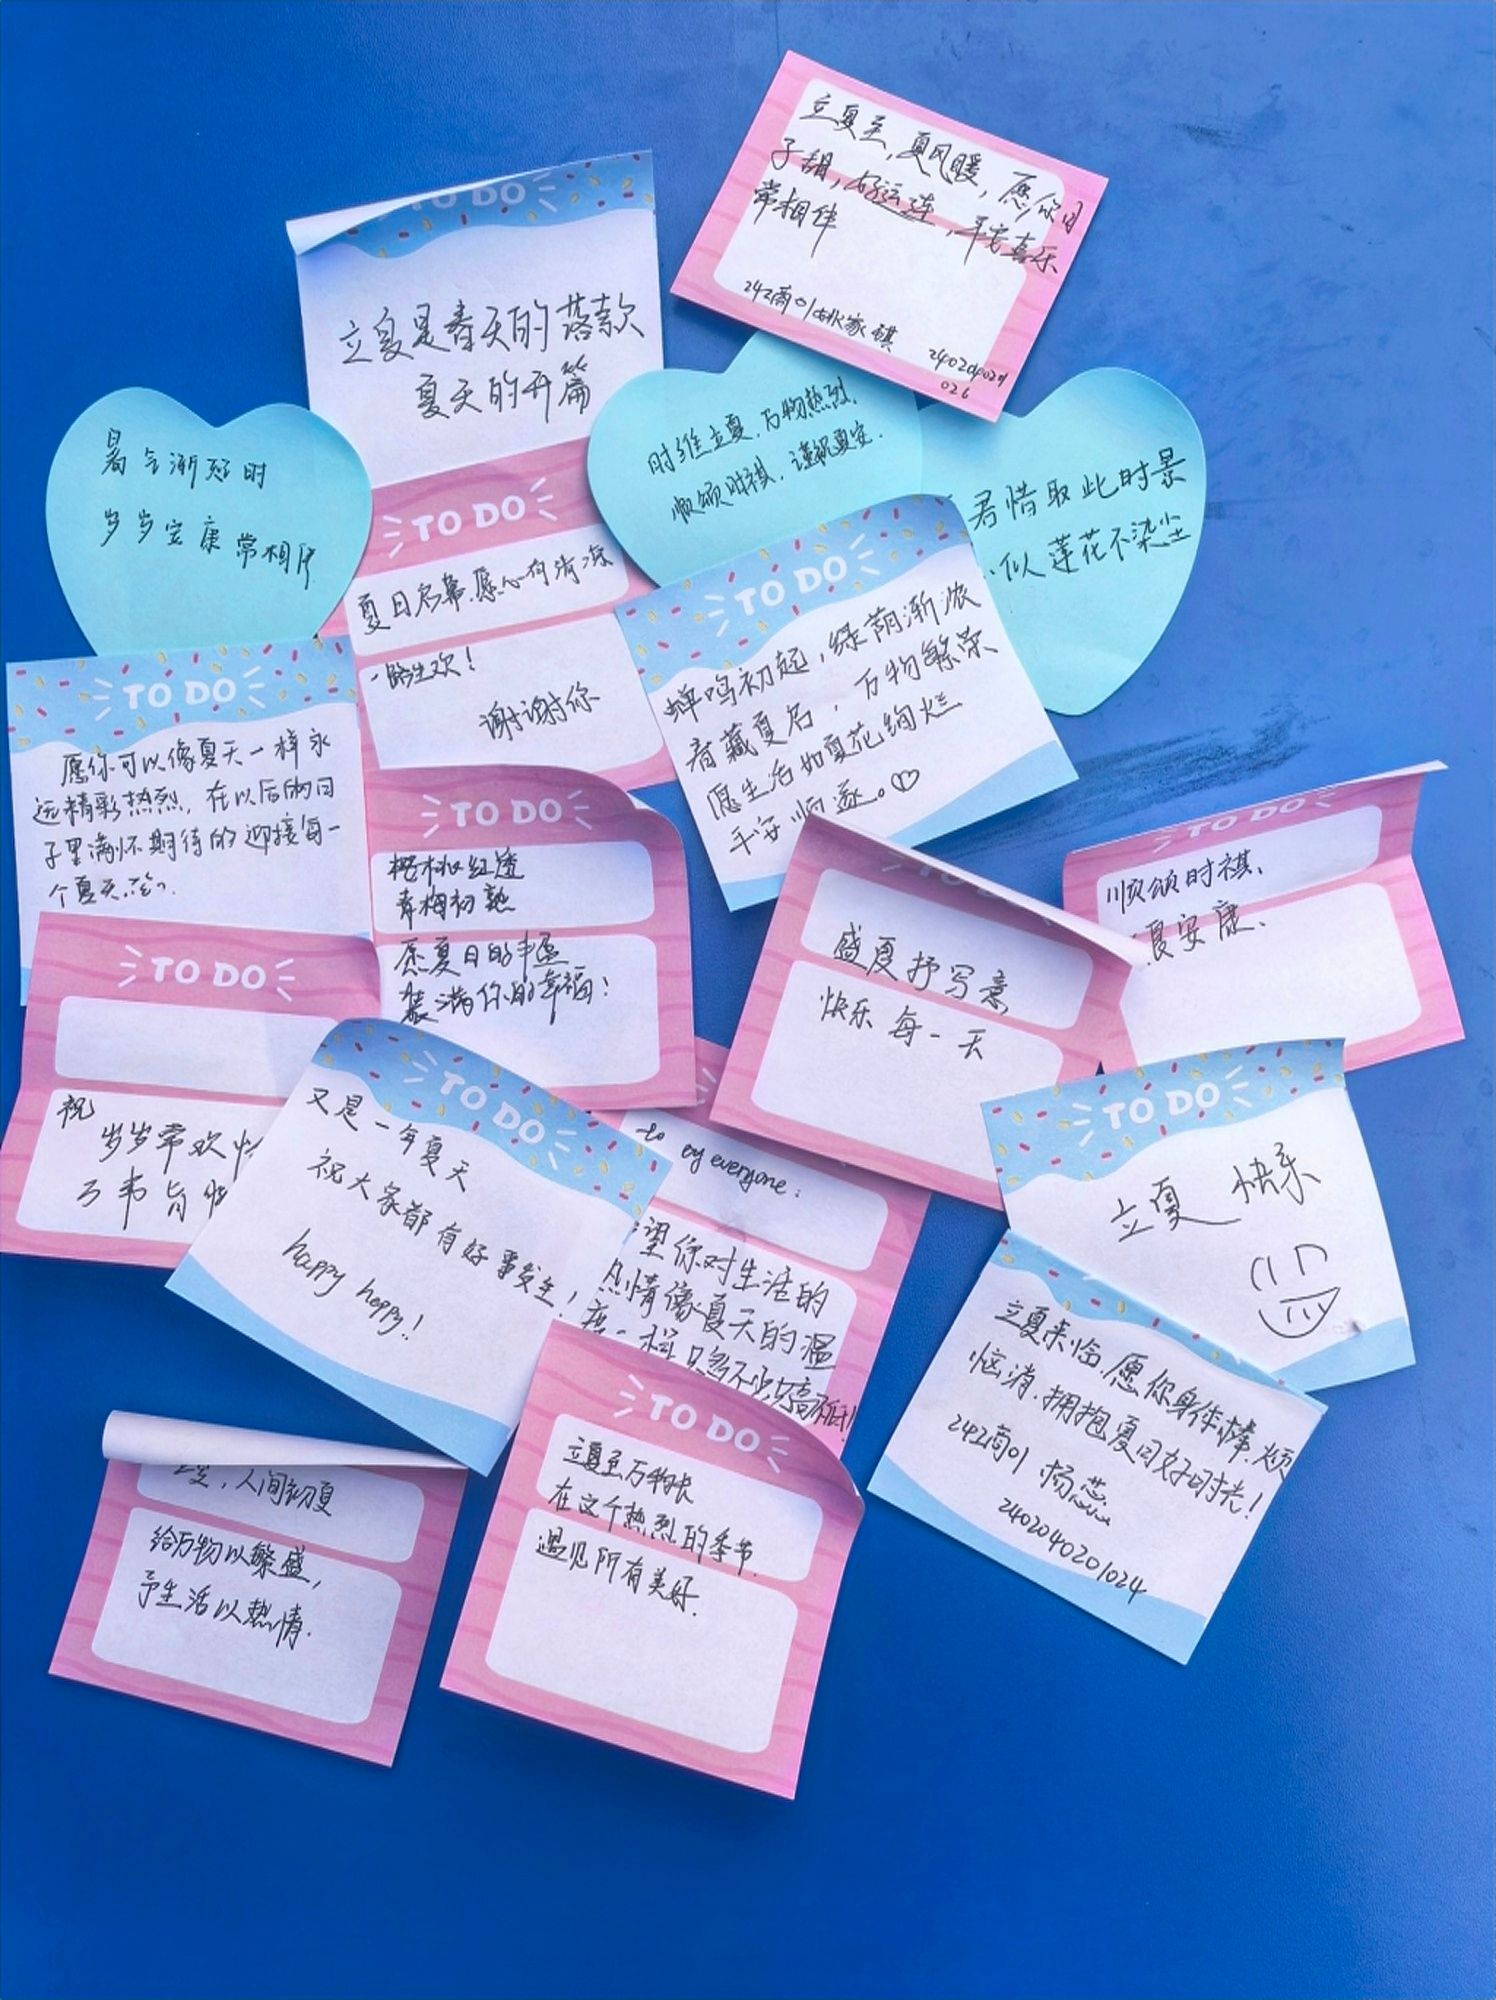 立夏至,夏风暖,愿你日
子甜,好运连,平安喜乐
常相伴
242商01姚家祺
2402040201
026
TO DO
立夏是春天的落款
夏天的开篇
暑气渐起时
岁岁安康常相伴
时维立夏.万物热烈.
顺颂时祺.谨祝夏安.
君惜取此时景
似莲花不染尘
TO DO
夏日启幕.愿心有清凉
一路生欢!
谢谢你
TO DO
蝉鸣初起,绿荫渐浓
春藏夏启,万物繁荣
愿生活如夏花绚烂
平安顺遂。
TO DO
愿你可以像夏天一样永
远精彩热烈,在以后的日
子里满怀期待的迎接每一
个夏天
TO DO
樱桃红透
青梅初熟
愿夏日的丰盈
装满你的幸福!
TO DO
盛夏抒写意,
快乐每一天
TO DO
顺颂时祺、
夏安康、
TO DO
祝
岁岁常欢愉
万事皆
TO DO
又是一年夏天
祝大家都有好事发生!
happy happy!
to everyone:
望你对生活的
热情像夏天的温
度一样只多不少
TO DO
立夏 快乐
立夏来临.愿你身体棒.烦
恼消.拥抱夏日好时光!
242商01 杨蕊
2402040201024
人间初夏
给万物以繁盛,
予生活以热情.
TO DO
立夏至万物长
在这个热烈的季节
遇见所有美好.